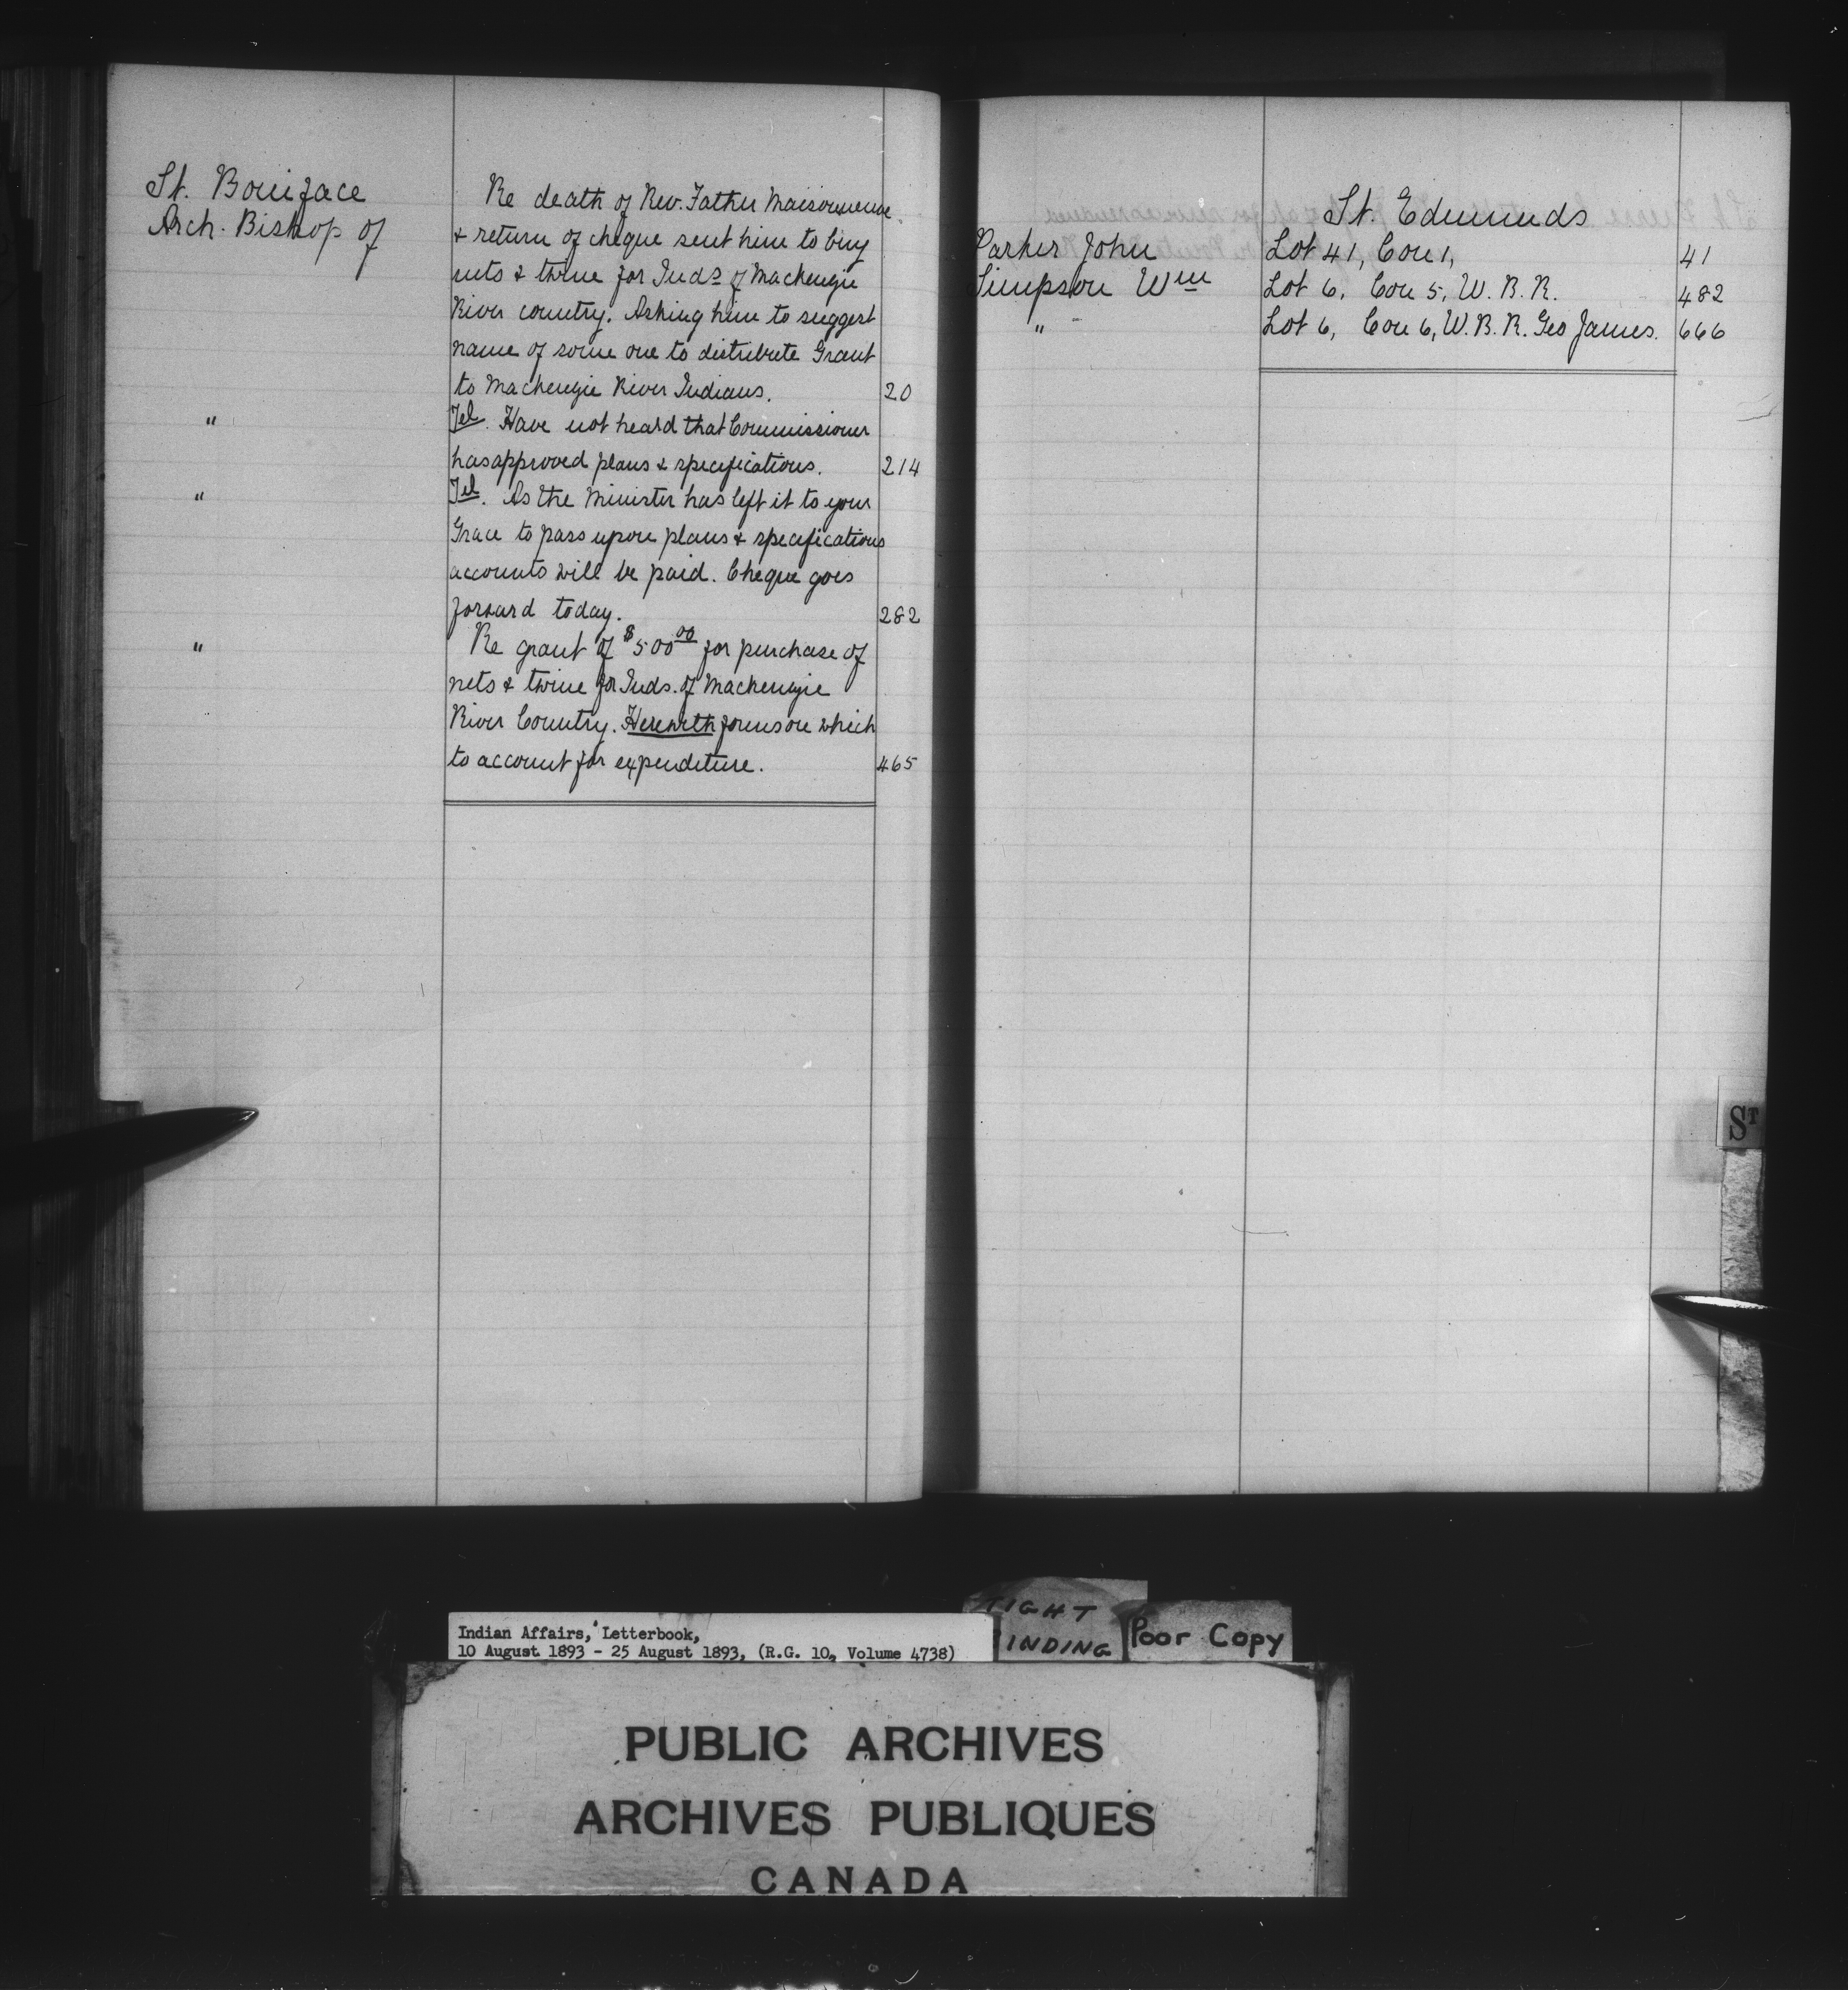 St. Boniface
Arch. Bishop of
Re death of Rev. Father Maisonneuve
& return of cheque sent him to buy
nets & twine for Inds of Mackenzie
River country. Asking him to suggest
name of some one to distribute Grant
to Mackenzie River Indians. 20
" Tel. Have not heard that Commissioner
has approved plans & specifications. 214
" Tel. As the Minister has left it to your
Grace to pass upon plans & specifications
accounts will be paid. Cheque goes
forward today. 282
" Re grant of $500 00 for purchase of
nets & twine for Inds. of Mackenzie
River Country. Herewith forms on which
to account for expenditure. 465
St. Edmunds
Parker John Lot 41, Con 1, 41
Simpson Wm Lot 6, Con 5, W. B. R. 482
" Lot 6, Con 6, W. B. R. Geo James. 666
ST
Indian Affairs, Letterbook,
10 August 1893 - 25 August 1893, (R.G. 10, Volume 4738)
TIGHT
INDING
Poor Copy
PUBLIC ARCHIVES
ARCHIVES PUBLIQUES
CANADA